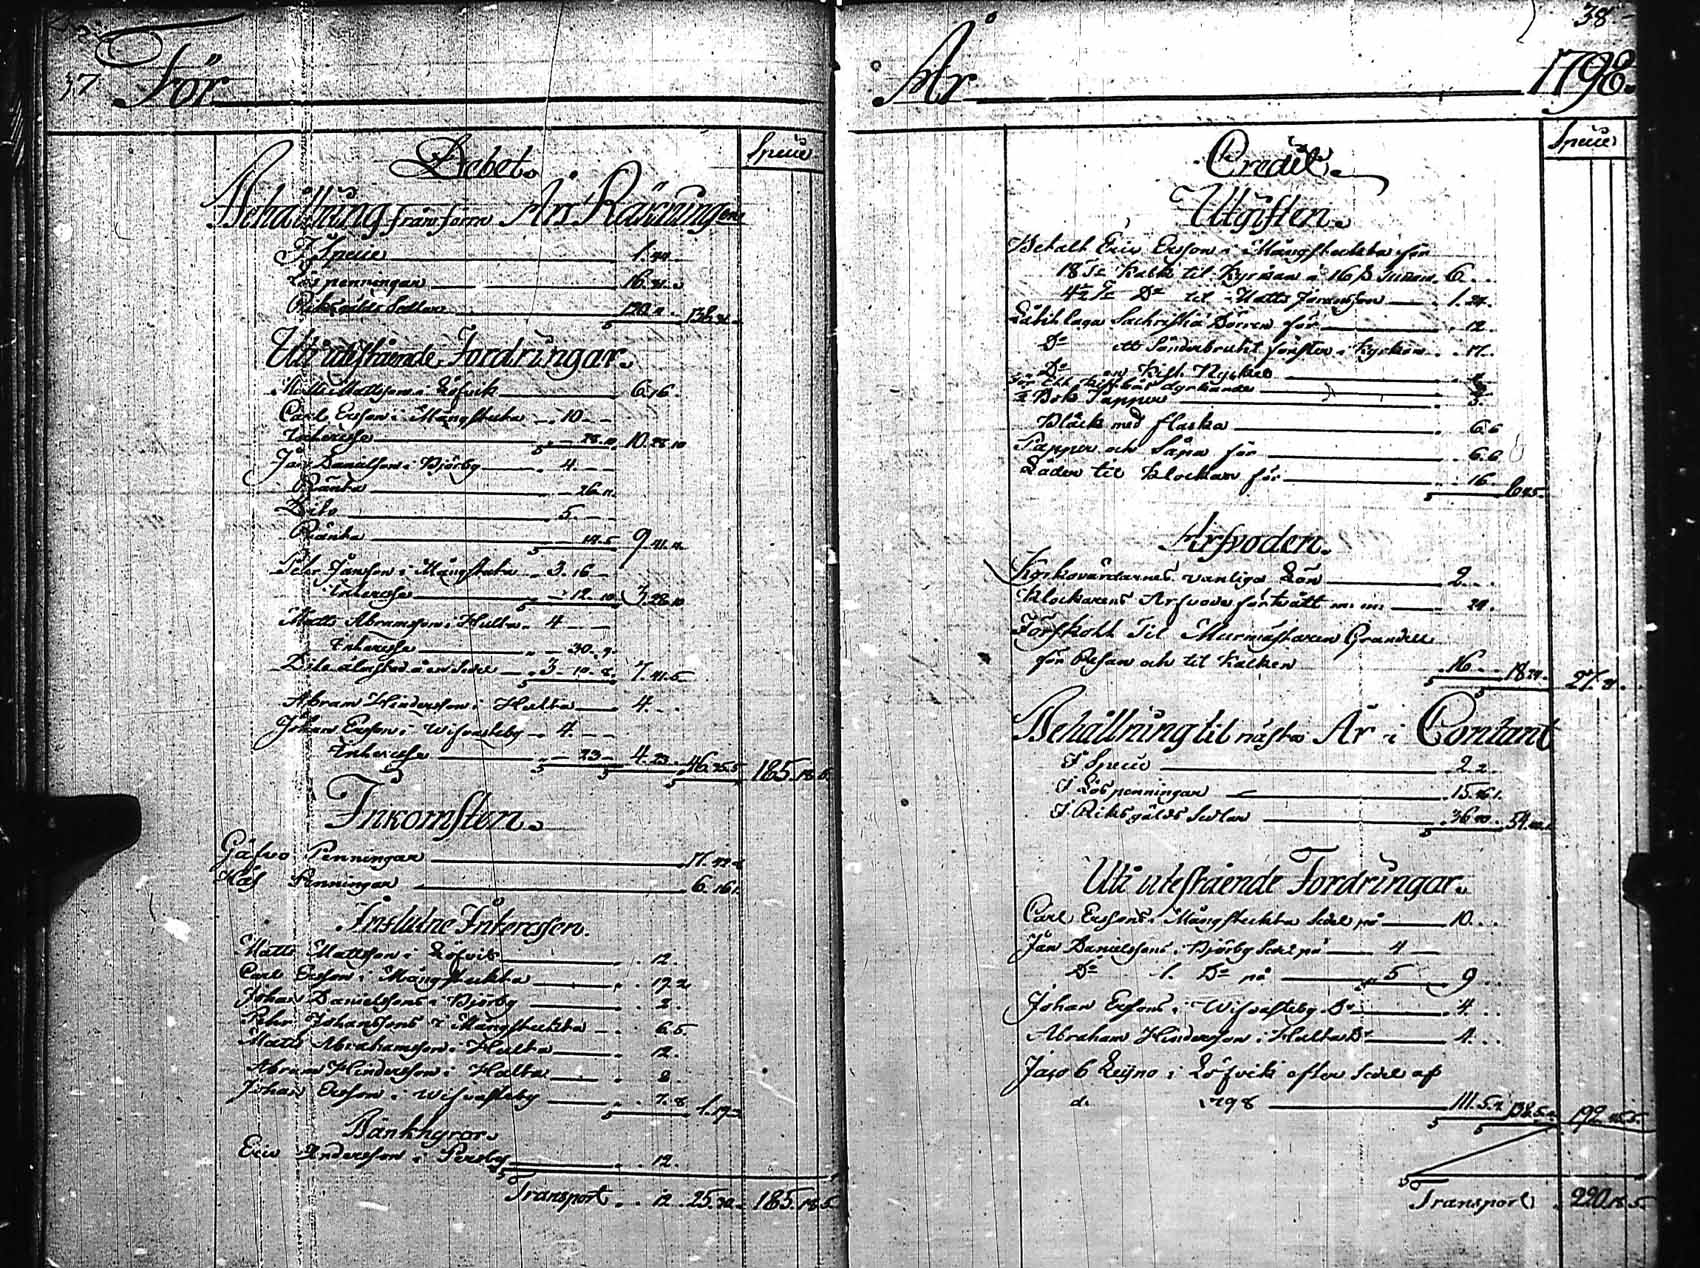 37 För
Debet.
Specie
Behållning från förra Års Räkningen
I Specie 1.44
Löspenningar 16.
Riksgälds Sedlar 120.
Uti utestående Fordringar.
Matts Mattsson i Löfvik 6.16
Carl Ersson i Mångstekta 10
Interesse 28.10 10.28.10
Jån Danielsson i Björby 4
Ränta 26.11
Dito 5
Ränta 14.5 9.41.4
Pehr Jånsson i Mångstekta 3.16
Interesse 12.10 3.28.10
Matts Abramsson i Hulta 4
Interesse 30.9
Dito 3.10.8 7.41.5
Abram Hindersson i Hulta 4
Johan Ersson i Wifvasteby 4
Interesse 23 4.23 46.35.5 185.18.5
Inkomsten.
Gåfvo Penningar 17.42.
Håf Penningar 6.16.1
Inslutne Interessen.
Matts Mattsson i Löfvik 12
Carl Ersson i Mångstekta 19.2
Johan Danielssons i Björby 2
Pehr Johanssons i Mångstekta 6.5
Matts Abrahamsson i Hulta 12
Abram Hindersson i Hulta 8
Johan Ersson i Wifvasteby 7.8 1.19.3
Bänkhyror.
Eric Andersson i Persby 12
Transport 12 25.32 185.18.5
38
År 1798.
Credit.
Specie
Utgiften.
Betalt Eric Ersson i Mångstekta för
18 Tr Kalk til Kyrkan a 16 ß Tunnan 6
4½ Tr Do til Matts Jöransson 1.24
Låtit laga Sachristie Dörren för 12
Do ett Sönderbrukt fönster i Kyrkan 17
Do en Kist Nyckel
2 Bok Papper 5
Bläck med flaska 6.6
Papper och Såpa för 6.6
Läder til Klockan för 16 6.45
Arfvoden.
Kyrkovärdarnes vanliga Lön 2
Klockarens Arfvode för tvätt m: m: 24
Förskott Til Murmästaren Grandell
för Resan och til Kalken 16 18.24 27.21
Behållning til nästa År i Contant
I Specie 2.2
I Löspenningar 15.46.1
I Riksgälds Sedlar 36. 54.
Uti utestående Fordringar.
Carl Erssons i Mångstekta Sedel på 10
Jån Danielssons i Björby Sedel på 4
Do 1. Do på 5 9
Johan Erssons i Wifvasteby Do 4
Abraham Hindersson i Hulta Do 4
Jacob Legno i Löfvik efter Sedel af
d. 1798 111.5.4 138.5.4 192.
Transport 220.18.5